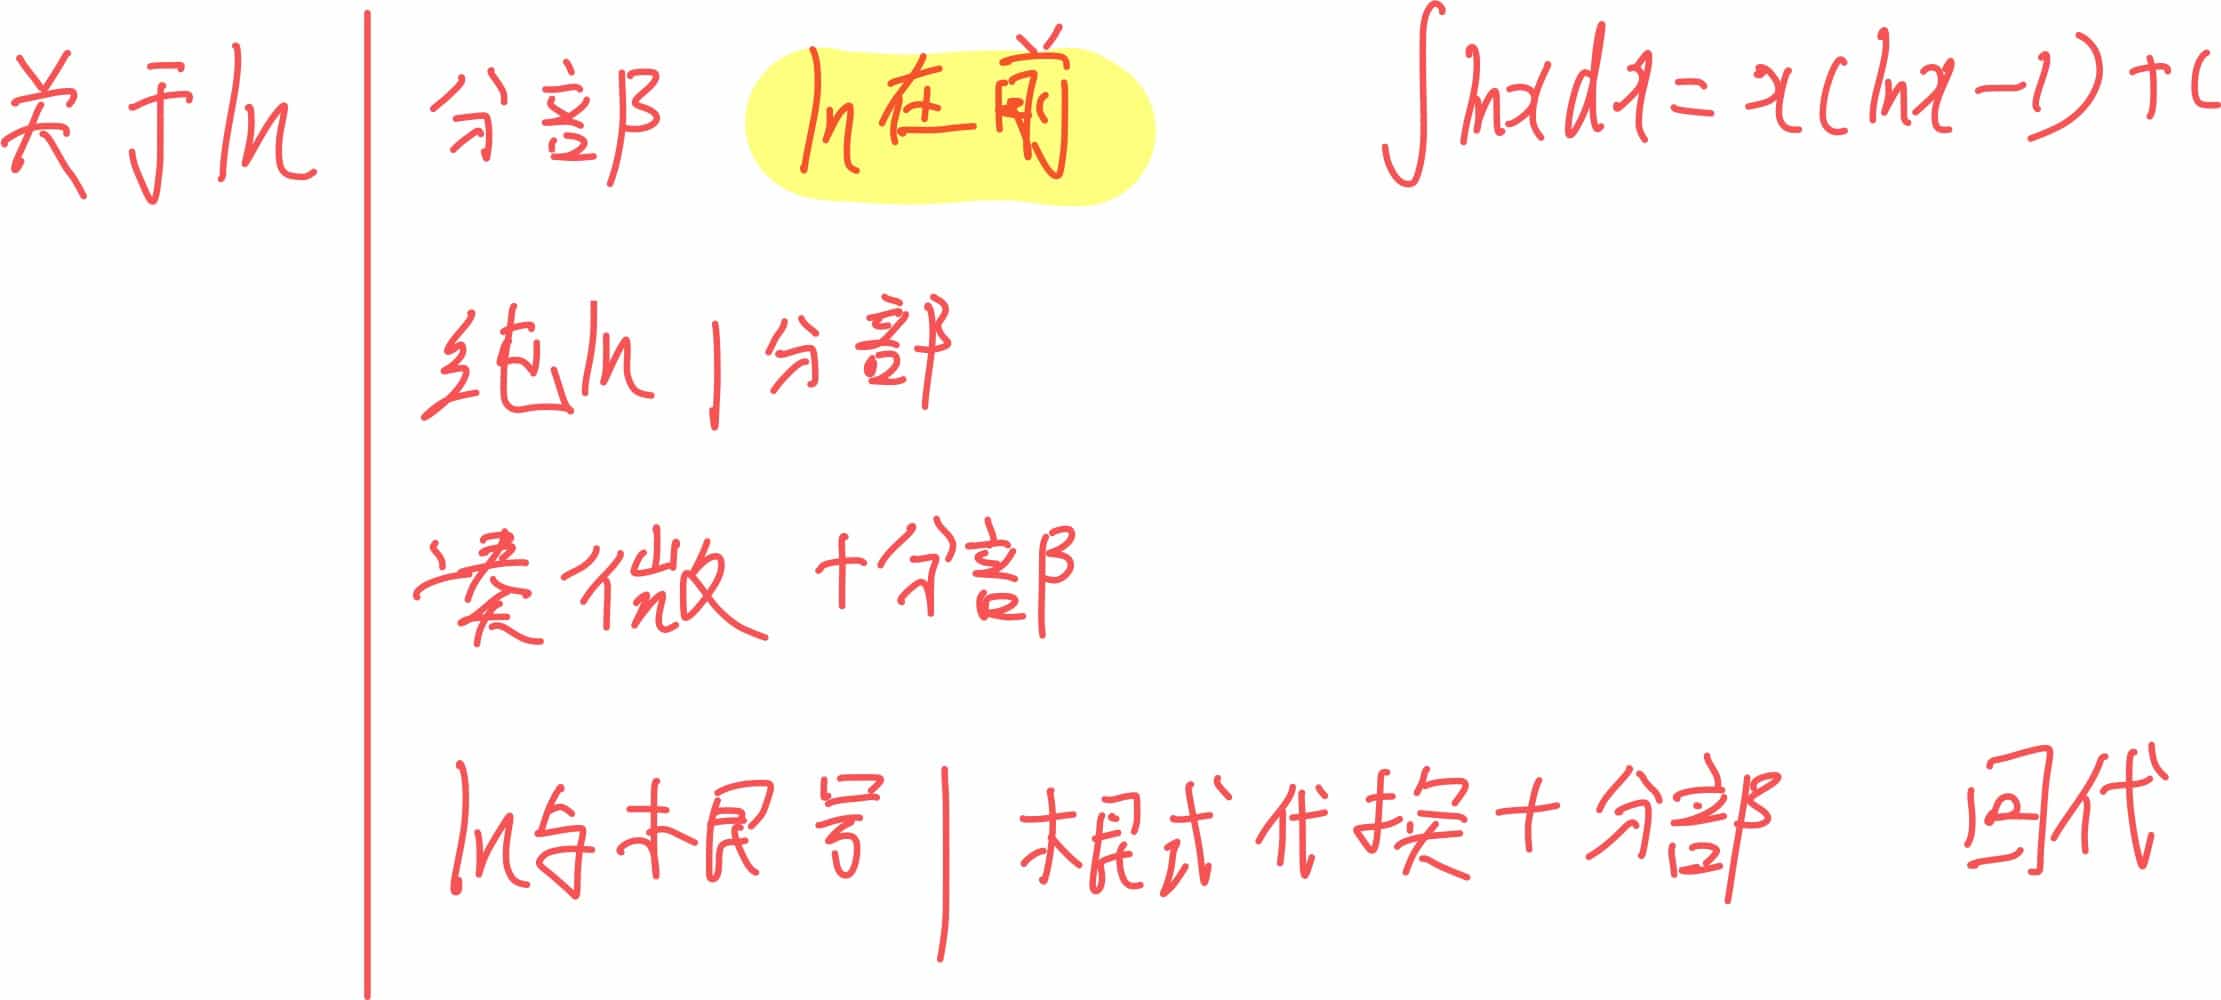 关于ln | 分部 ln在前 ∫lnxdx=x(lnx-1)+C
纯ln | 分部
凑微+分部
ln与根号 | 根式代换+分部 回代